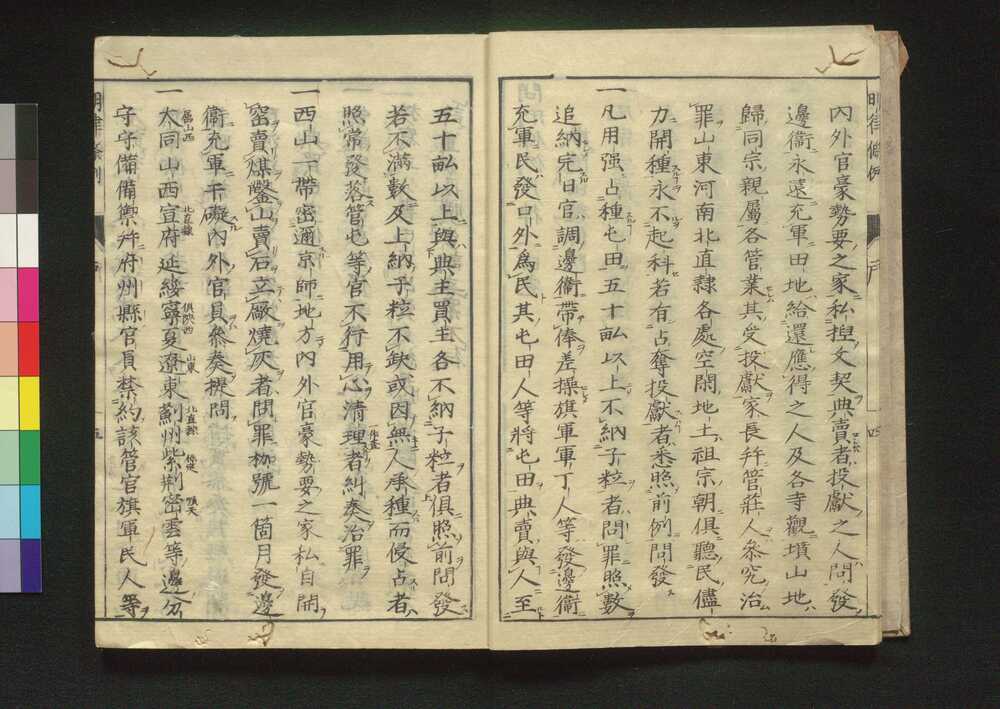 內外官豪勢要之家私捏文契典賣者投獻之人問發
邊衞永遠充軍田地給還應得之人及各寺觀墳山地
歸同宗親屬各管業其受投獻家長幷管莊人叅究治
罪山東河南北直隷各處空閑地土祖宗朝俱聽民儘
力開種永不起科若有占奪投獻者悉照前例問發
一凡用强占種屯田五十畝以上不納子粒者問罪照數
追納完日官調邊衞帶俸差操旗軍軍丁人等發邊衞
充軍民發口外爲民其屯田人等將屯田典賣與人至
五十畝以上與典主買主各不納子粒者俱照前問發
若不滿數及上納子粒不缺或因無人承種而侵占者
照常發落管屯等官不行用心淸理者糾奏治罪
一西山一帶密邇京師地方內外官豪勢要之家私自開
窑賣煤鑿山賣石立廠燒灰者問罪枷號一箇月發邊
衞充軍干礙內外官員叅奏提問
一大同山西宣府延綏寧夏遼東薊州紫荆密雲等邊分
守守備備禦幷府州縣官員禁約該管官旗軍民人等
明律條例